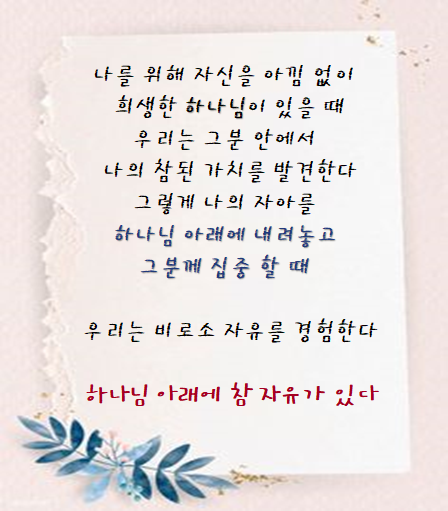 나를 위해 자신을 아낌 없이
희생한 하나님이 있을 때
우리는 그분 안에서
나의 참된 가치를 발견한다
그렇게 나의 자아를
하나님 아래에 내려놓고
그분께 집중 할 때
우리는 비로소 자유를 경험한다
하나님 아래에 참 자유가 있다